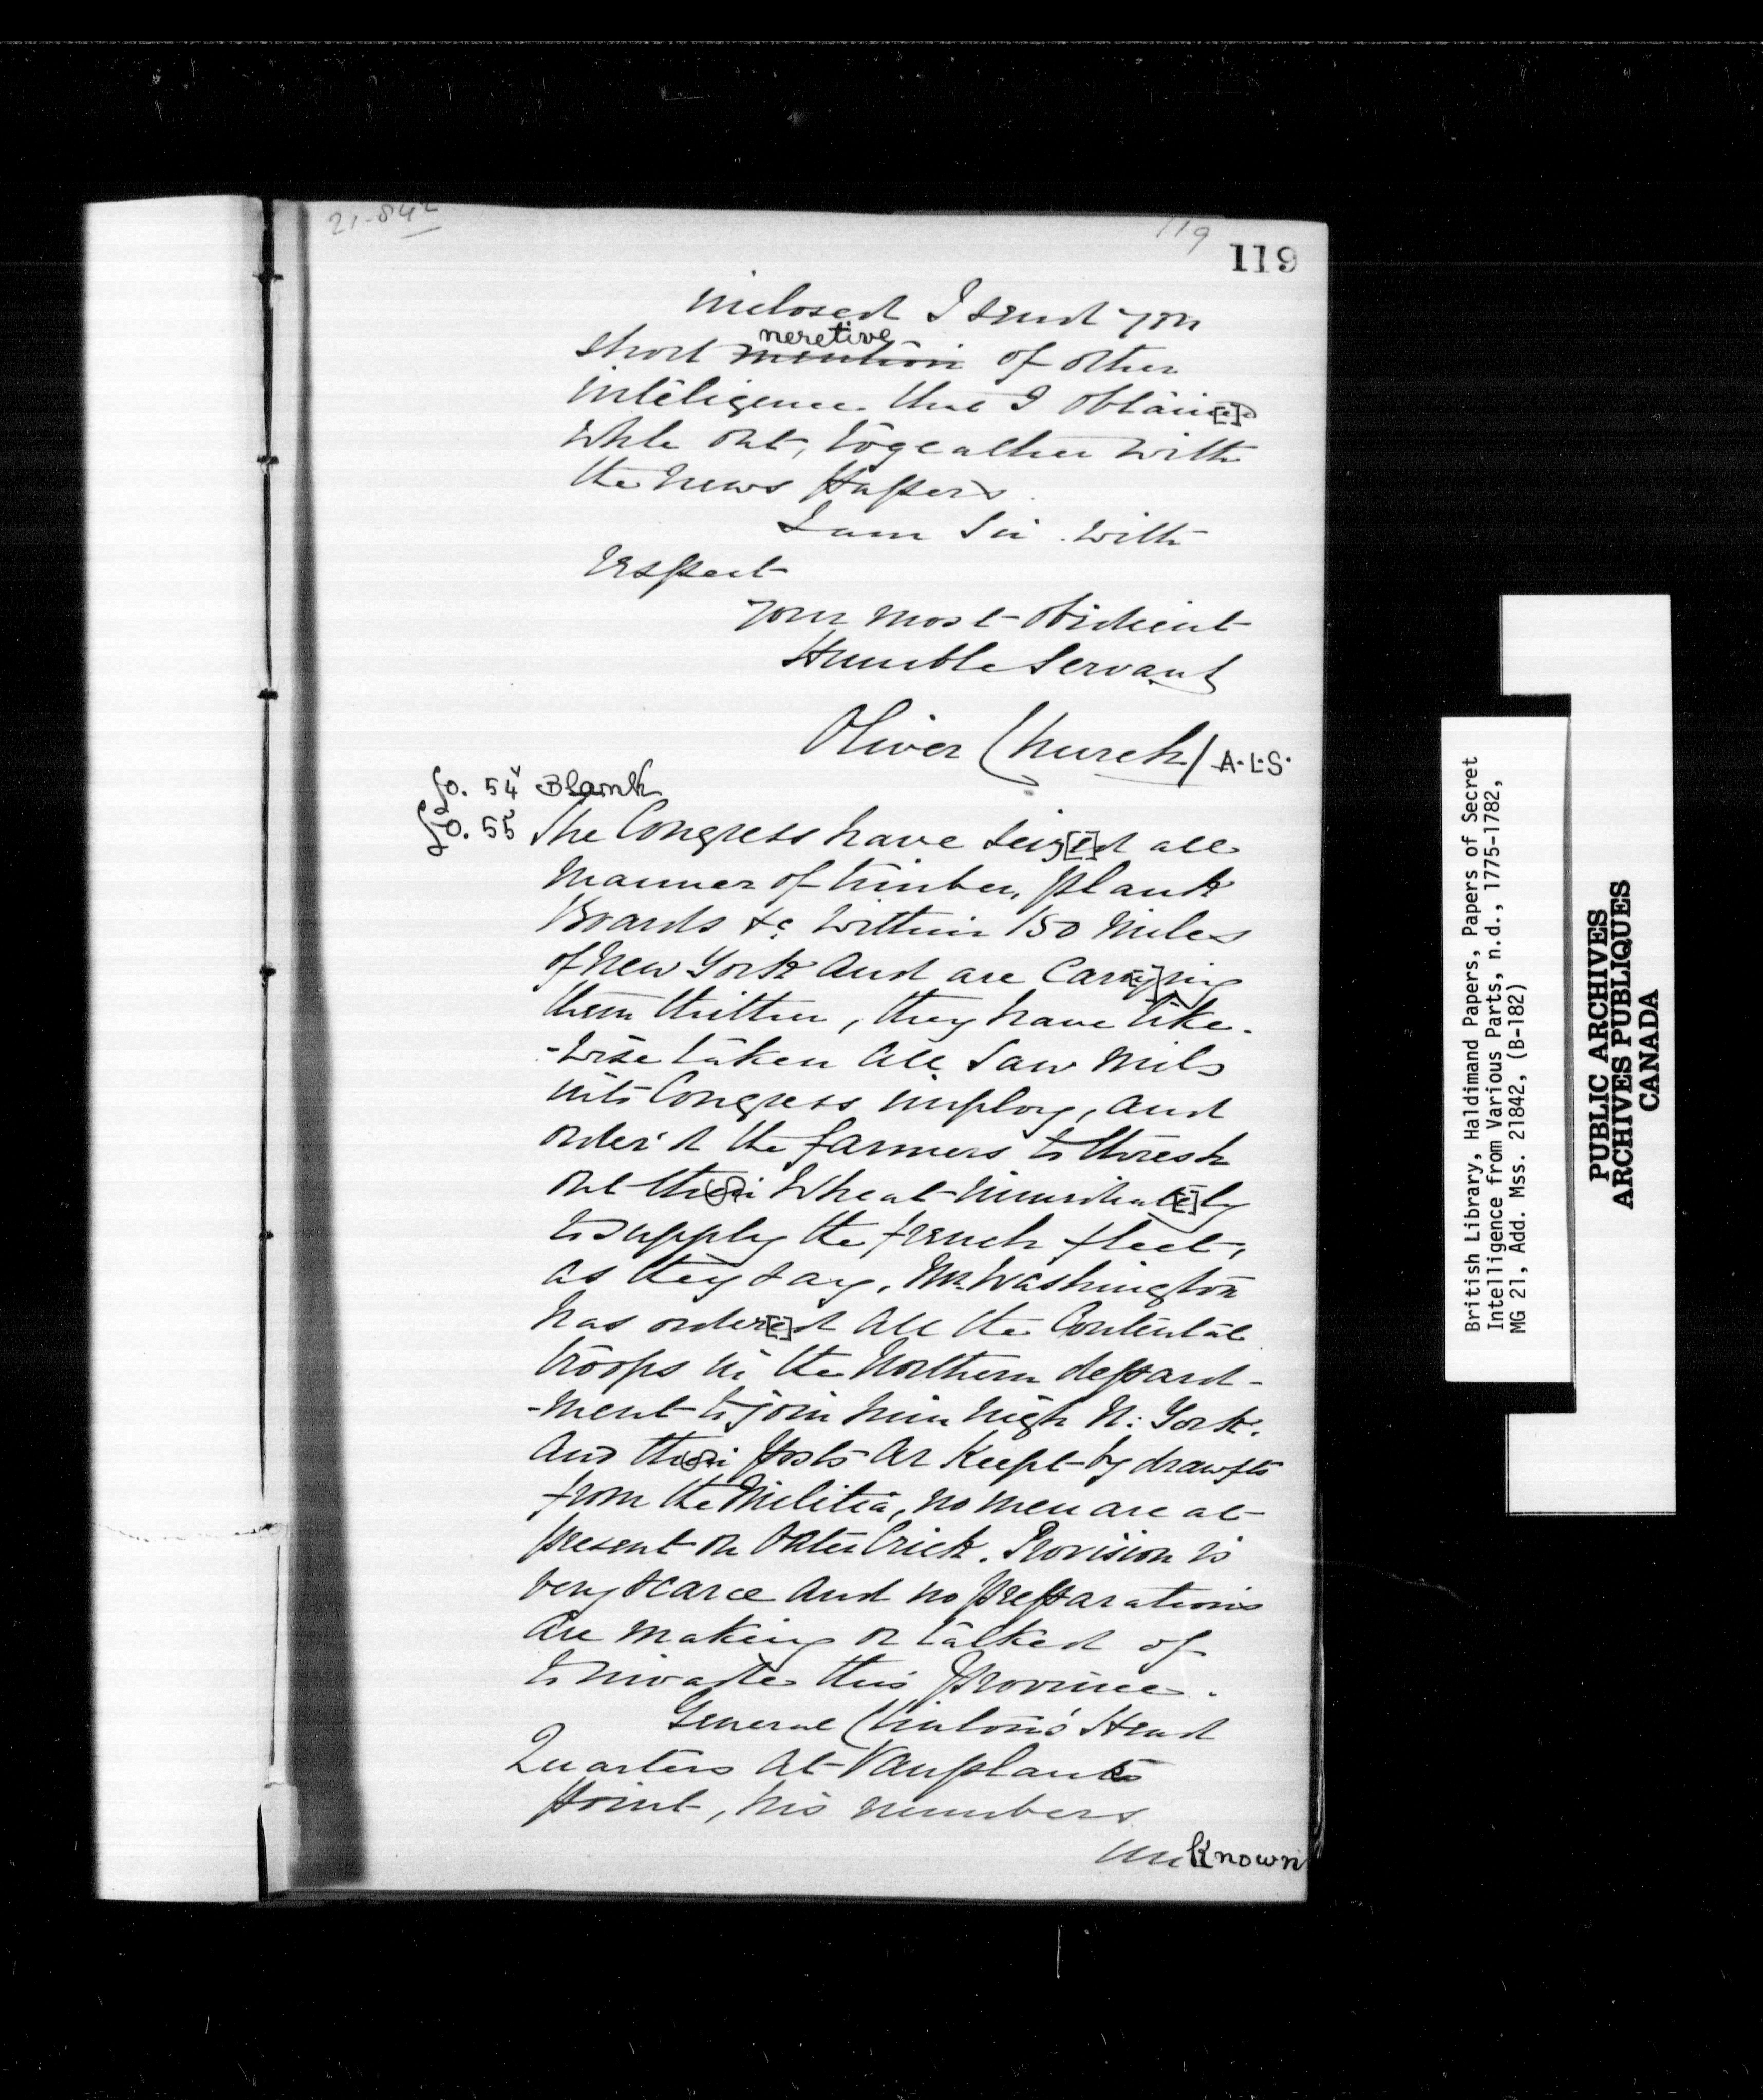 21-842
119
119
inclosed I send you
short mention neretive of other
inteligence that I obtain[e]d
while out, togeather with
the News Pappers.
I am Sir with
respect
your most obidient
Humble Servant
Oliver Church / A.L.S.
fo. 54v Blank
fo. 55 The Congress have seiz[e]d all
manner of timber, plank
Boards &c. within 150 Miles
of New York and are Carr[y]ing
them thither, they have like-
-wise taken all Saw Mils
into Congress imploy, and
order'd the farmers to thresh
out their Wheat immediat[e]ly
to supply the french fleet,
as they say, Mr. Washington
has order[e]d all the Contintal
troops in the Northern depart-
-ment to join him nigh N: York.
and their posts ar Keept by drawfts
from the Militia, no men are at
present on Otter Crick. Provision is
very scarce and no preparations
are making or talked of
to invade this province.
General Clinton's Head
Quarters at Vanplanks
point, his numbers
unknown
British Library, Haldimand Papers, Papers of Secret
Intelligence from Various Parts, n.d., 1775-1782,
MG 21, Add. Mss. 21842, (B-182)
PUBLIC ARCHIVES
ARCHIVES PUBLIQUES
CANADA